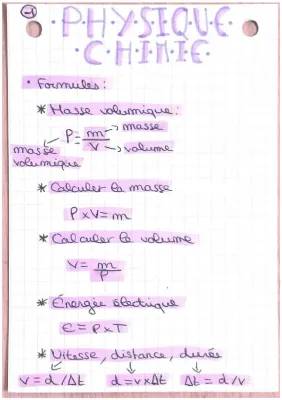 -1-
PHYSIQUE
CHIMIE
• Formules :
* Masse volumique :
P = m/V → masse → volume
masse volumique
* Calculer la masse
P x V = m
* Calculer le volume
V = m/P
* Énergée électrique
E = P x T
* Vitesse, distance, durée
v = d/Δt d = v x Δt Δt = d/v